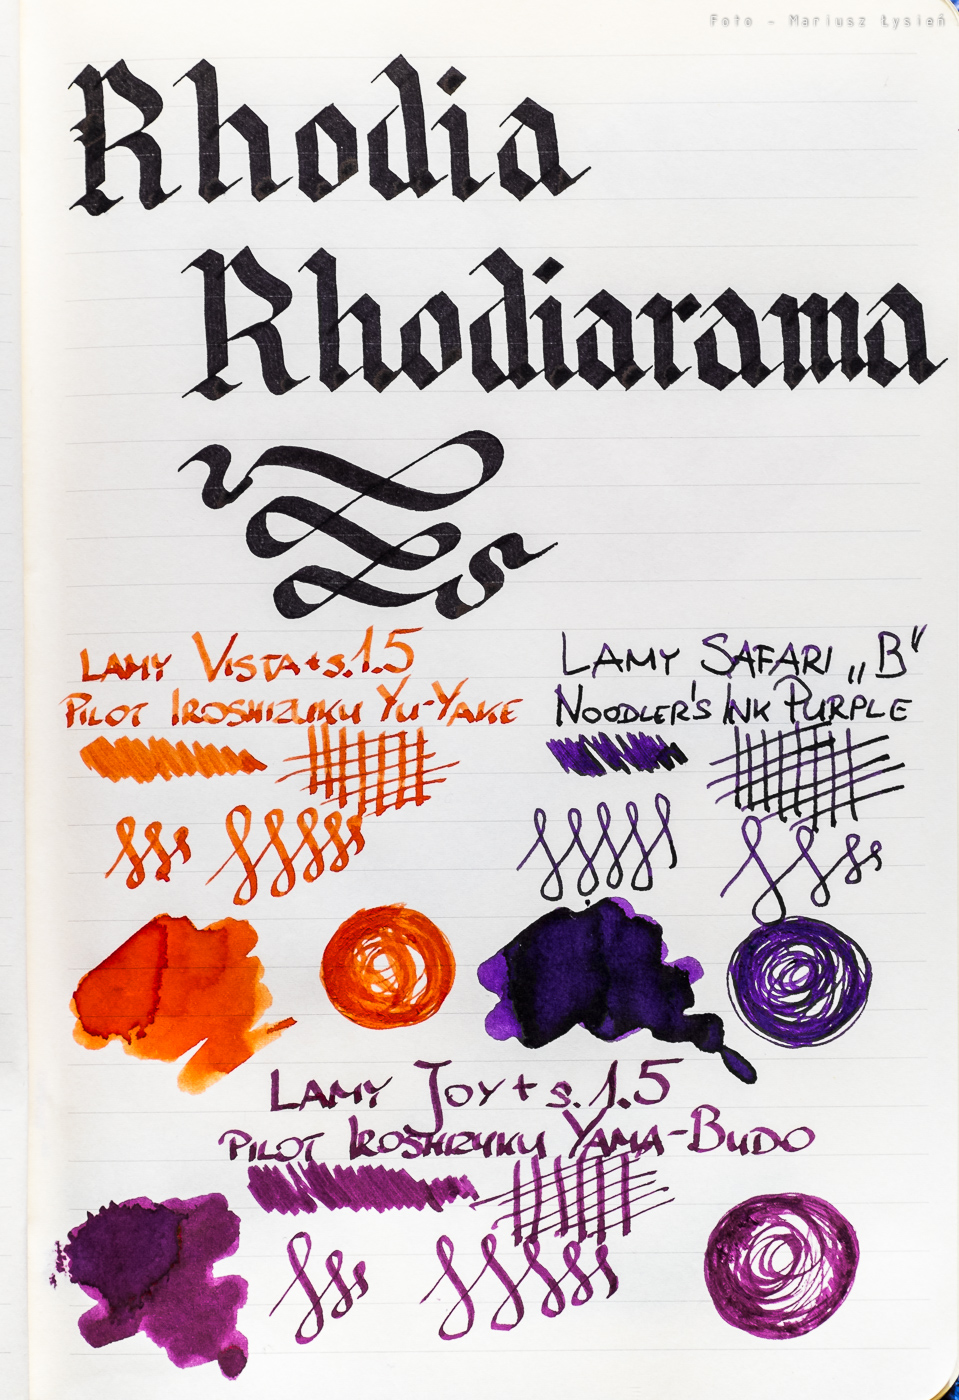 Foto - Mariusz Łysień
Rhodia
Rhodiarama
LAMY VISTA + s. 1.5
PILOT IROSHIZUKU YU-YAKE
LAMY SAFARI „B"
NOODLER'S INK PURPLE
LAMY JOY + s. 1.5
PILOT IROSHIZUKU YAMA-BUDO